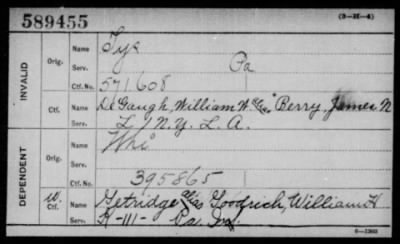 589455
(3-H-4)
INVALID
Orig.
Name Tyr
Serv. Pa
Ctf. No. 571,608
Ctf.
Name De Gaugh, William W. alias Berry, James N
Serv. L, N.Y. L. A.
DEPENDENT
Orig.
Name Whi
Serv.
Ctf. No. 395865
W.
Ctf.
Name Getridge alias Goodrich, William H
Serv. K-111- Pa. Inf.